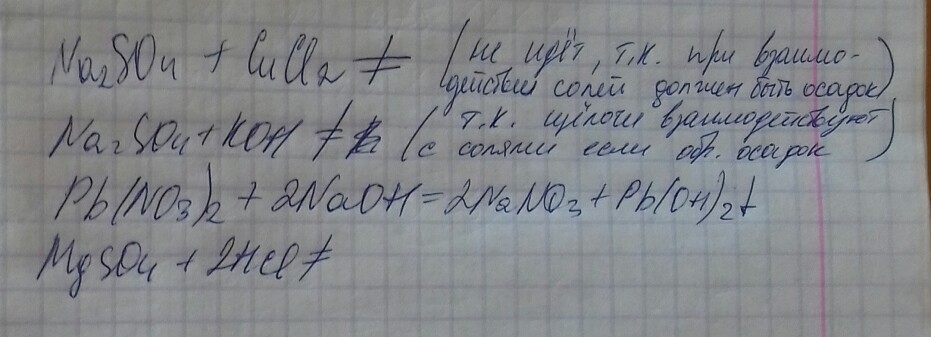 Na₂SO₄ + CuCl₂ ≠ (не идёт, т.к. при взаимо-
действии солей должен быть осадок)
Na₂SO₄ + KOH ≠ (т.к. щёлочи взаимодействуют
с солями если обр. осадок)
Pb(NO₃)₂ + 2NaOH = 2NaNO₃ + Pb(OH)₂↓
MgSO₄ + 2HCl ≠